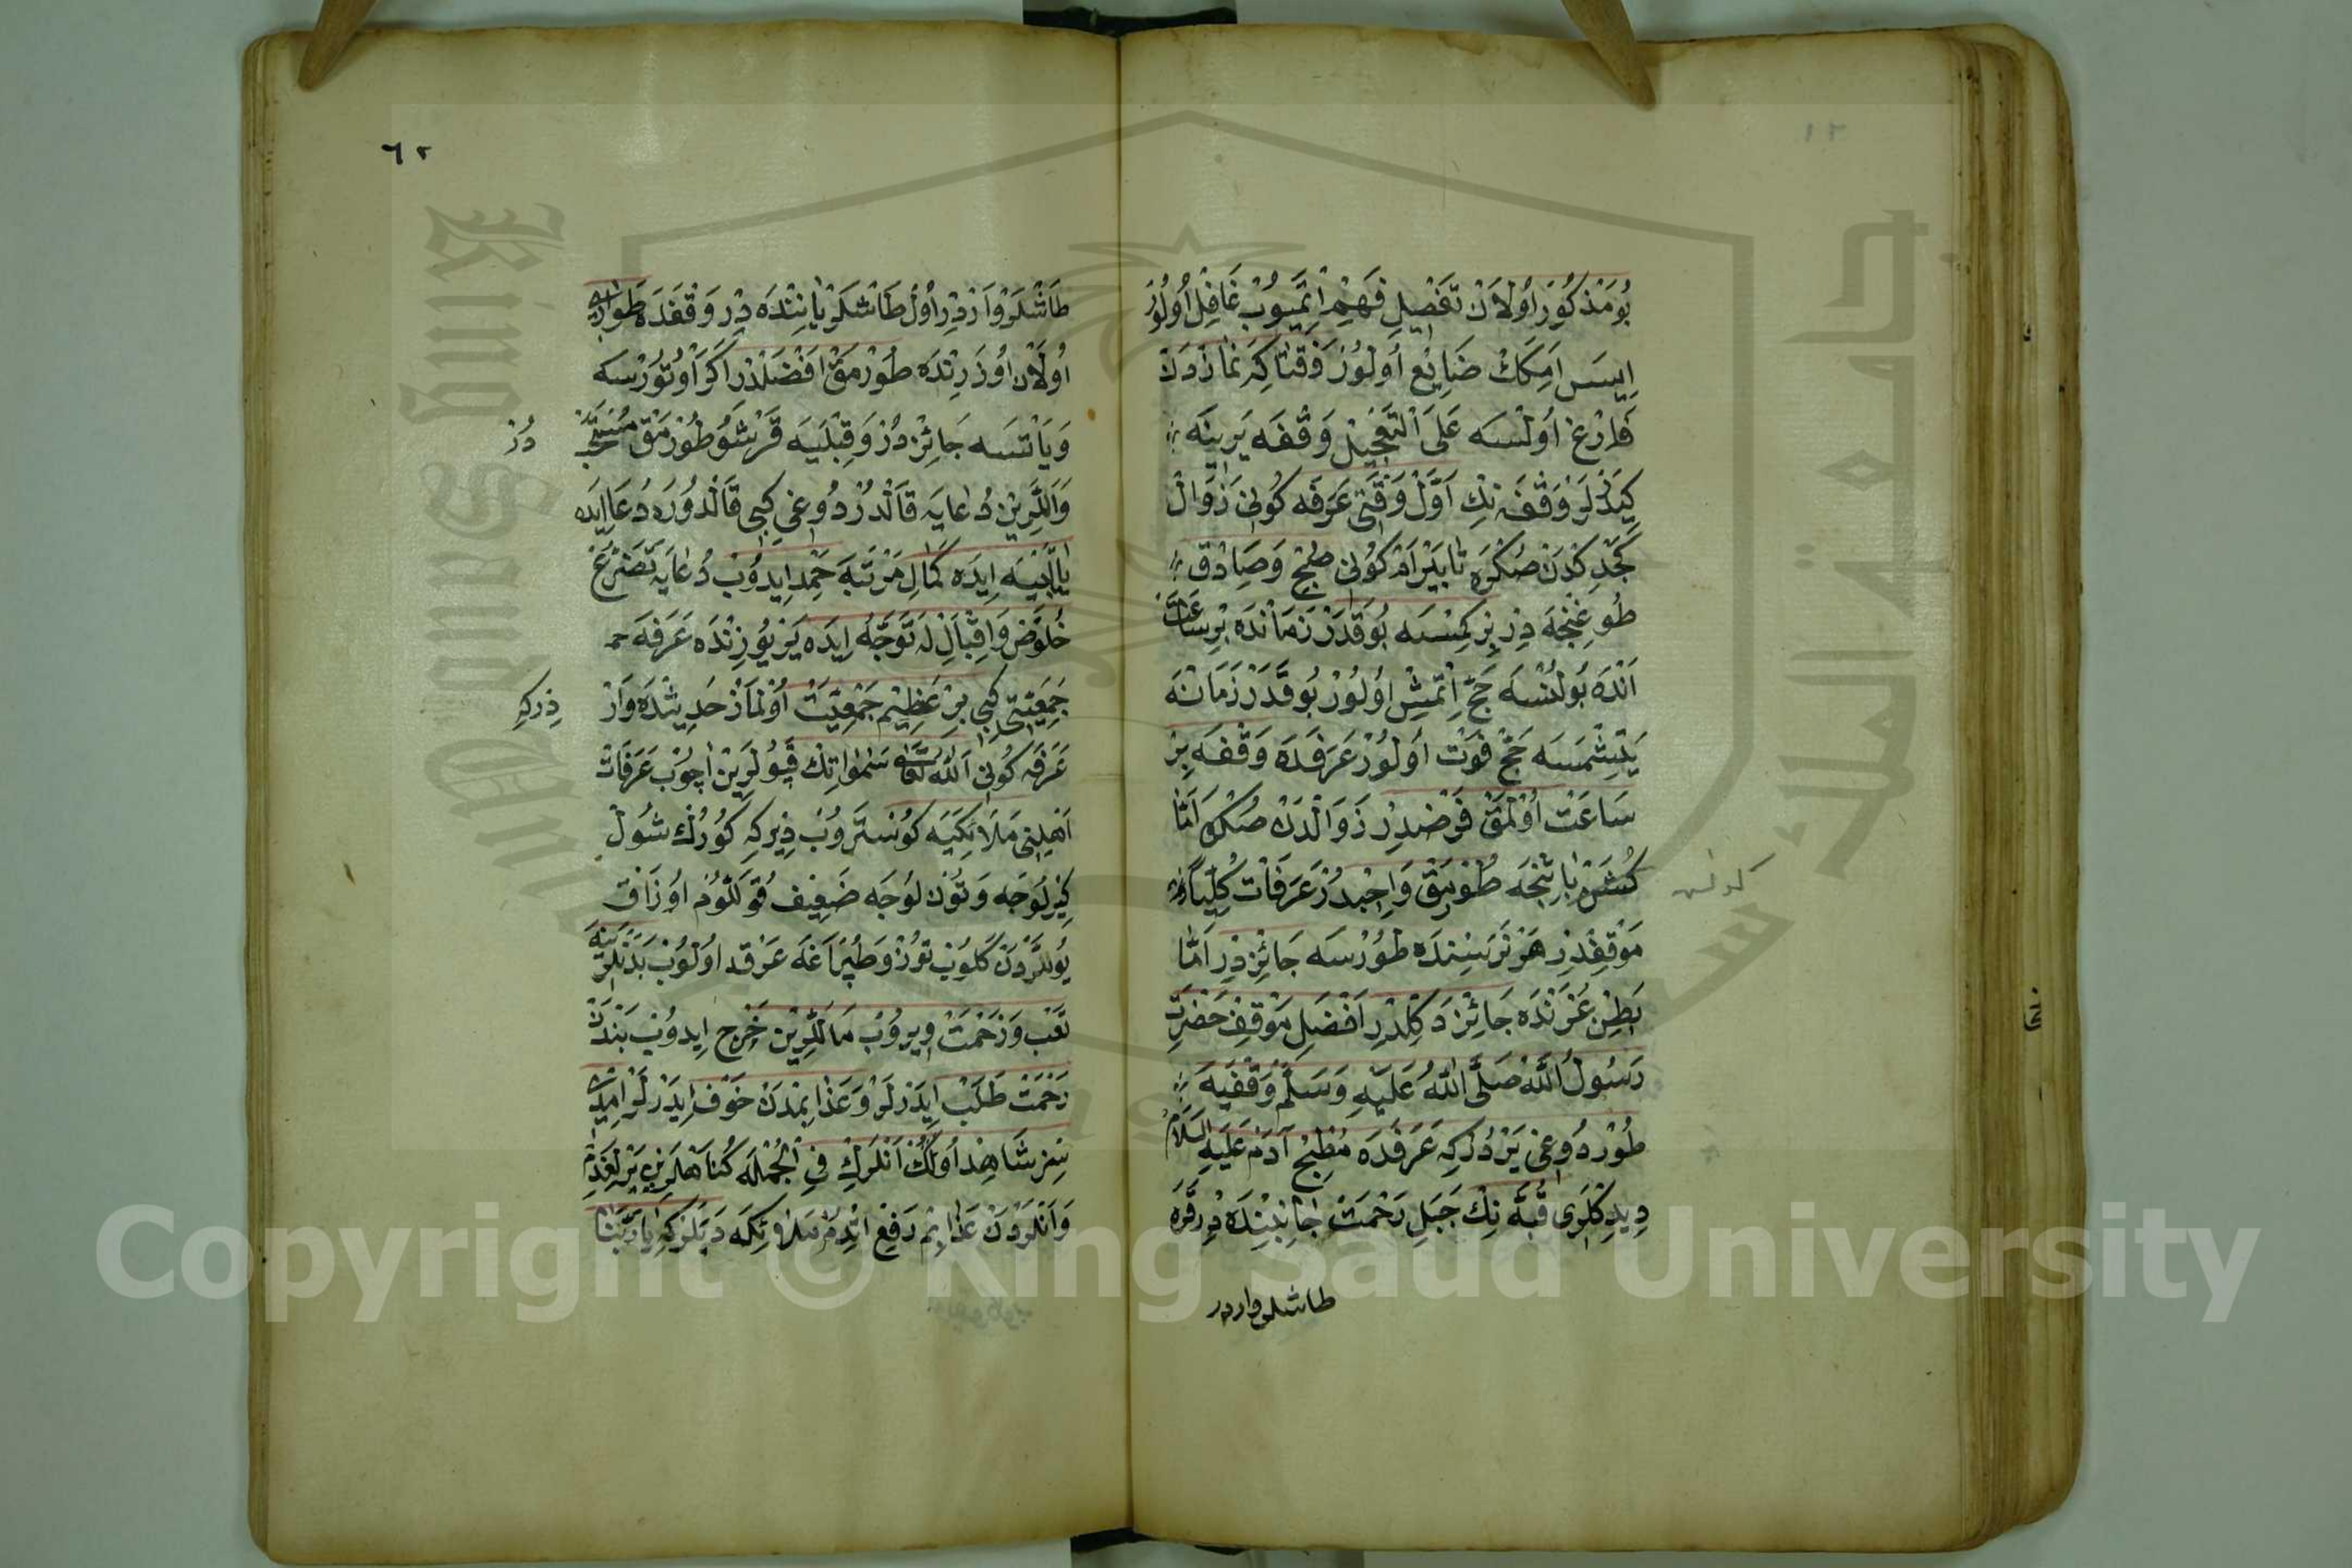 بُومَذْكُورْ اُولَانْ تَفْصِيلِ فَهِيمْ اِتْمَيُوبْ غَافِلْ اُولُورْ
اِيسَه اَمَكَكْ ضَايِعْ اُولُورْ وَقْتَاكِه نَمَازْدَنْ
فَارِغْ اُولْسَه عَلَى التَّعْجِيلْ وَقْفَه يَرِينَه
كِيدَرْلَرْ وَقْفَه نِكْ اَوَّلْ وَقْتِى عَرَفَه كُونِى زَوَالْ
كَجْدِكْدَنْ صُكْرَه تَا بَيْرَامْ كُونِى صُبْحْ وَصَادِقْ
طُوغِنْجَه دِرْ بِرْ كِمْسَه بُو قَدَرْ زَمَانْدَه بِرْ سَاعَتْ
اَنْدَه بُولُنْسَه حَجّ اِتْمِشْ اُولُورْ بُو قَدَرْ زَمَانَه
يَتِشْمَسَه حَجّ فَوْتْ اُولُورْ عَرَفَدَه وَقْفَه بِرْ
سَاعَتْ اُولْمَقْ فَرْضْدِرْ زَوَالْدَنْ صُكْرَه اَمَّا
كُنَشْ بَاتِنْجَه طُورْمَقْ وَاجِبْدُرْ عَرَفَاتْ كُلِّيًا
مَوْقِفْدِرْ هَرْ نَرَسِنْدَه طُورْسَه جَائِزْدِرْ اَمَّا
بَطْنِ عُرَنْدَه جَائِزْ دَكِلْدِرْ اَفْضَلِ مَوْقِفْ حَضْرَتِ
رَسُولُ اللّٰهْ صَلَّى اللّٰهُ عَلَيْهِ وَسَلَّمْ وَقْفَيَه
طُورْدُوغِى يَرْدُرْكِه عَرَفَدَه مَطْبَخِ آدَمْ عَلَيْهِ السَّلَامْ
دِيدِكْلَرِى قُبَّه نِكْ جَبَلِ رَحْمَتْ جَانِبِنْدَه دِرْ قَرَه
طاشلر واردر
٦٢
طَاشْلَرْ وَارْدِرْ اُولْ طَاشْلَرْ يَانِنْدَه دِرْ وَقْفَدَه طَوَارْ
اُولَانْ اُوزَرِنْدَه طُورْمَقْ اَفْضَلْدِرْ اَكَرْ اُوتُورْسَه
وَيَاتْسَه جَائِزْدُرْ وَقِبْلَيَه قَرْشُو طُورْمَقْ مُسْتَحَبْ
دُرْ
وَاَلْلَرِينْ دُعَايَه قَالْدُرْدُوغِى كِبِى قَالْدُورَه دُعَا ايدَه
يَا تَلْبِيَه اِيدَه كَمَالِ مَرْتَبَه حَمْد اِيدُوبْ دُعَايَه تَضَرُّعْ
خُلُوصْ وَاِقْبَالْ لَه تَوَجُّهْ اِيدَه يَرْ يُوزِنْدَه عَرَفَه
جَمْعِيَّتِى كِبِى بِرْ عَظِيمْ جَمْعِيَتْ اُولْمَازْ حَدِيثْدَه وَارْ
دِرْكِه
عَرَفَه كُونِى اَللّٰهُ تَعَالٰى سَمٰوَاتِكْ قَپُولَرِينْ اَچُوبْ عَرَفَاتْ
اَهْلِنِى مَلَائِكَيَه كُوسْتَرُوبْ دِيرْكِه كُورُكْ شُولْ
كِيرْلُوجَه وَتُوزْلُوجَه ضَعِيفْ قُوَّلَّرُمْ اُوزَاقْ
يُولْلَرْدَنْ كَلُوبْ تُوزْ وَطُپْرَاغَه غَرْقْ اُولُوبْ بَدَنْلَرِينَه
تَعَبْ وَزَحْمَتْ وِيرُوبْ مَالْلَرِينْ خَرْجْ اِيدُوبْ بَنْدَنْ
رَحْمَتْ طَلَبْ اِيدَرْلَرْ وَعَذَابِمْدَنْ خَوْفْ اِيدَرْلَرْ اِمْدِى
سِزْ شَاهِدْ اُولُكْ اَنْلَرِكْ فِى الْجُمْلَه كُنَاهْلَرِينْ يَرْلِغَدِمْ
وَاَنْلَرْدَنْ عَذَابِمْ دَفِعْ اِتْدِمْ مَلَائِكَه دَيَلَرْكِه يَا رَبَّنَا